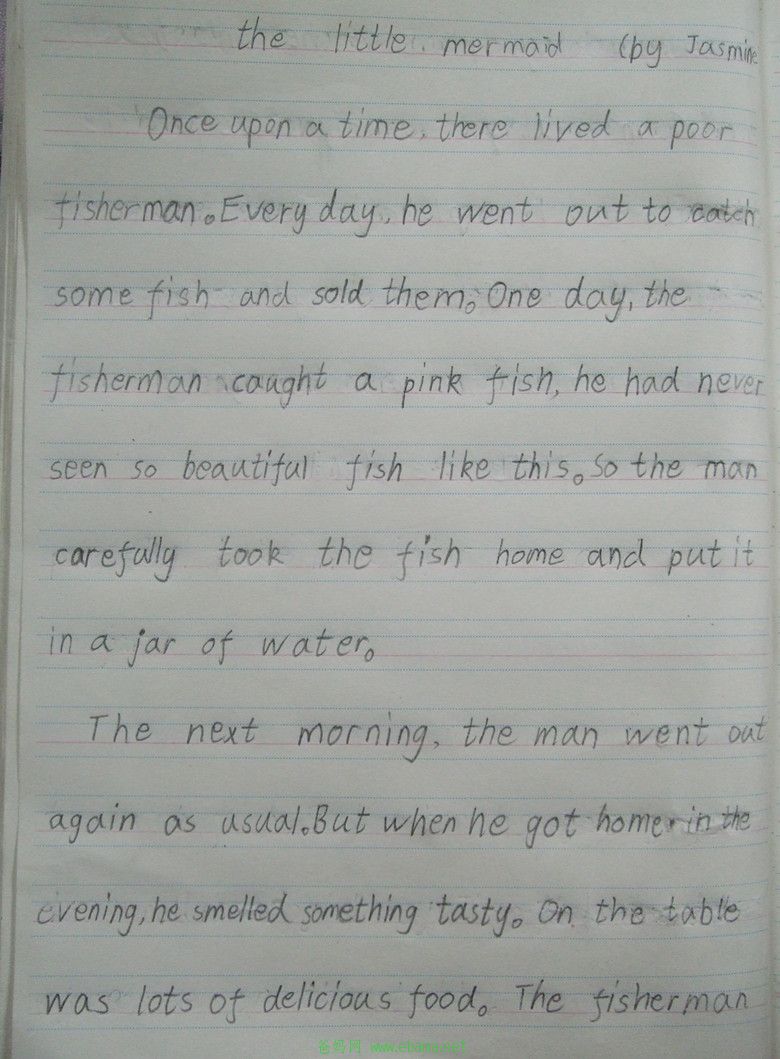 the little mermaid (by Jasmine
Once upon a time, there lived a poor
fisherman。Every day, he went out to catch
some fish and sold them。One day, the
fisherman caught a pink fish, he had never
seen so beautiful fish like this。So the man
carefully took the fish home and put it
in a jar of water。
The next morning, the man went out
again as usual。But when he got home in the
evening, he smelled something tasty。On the table
was lots of delicious food。The fisherman
爸妈网 www.ebama.net